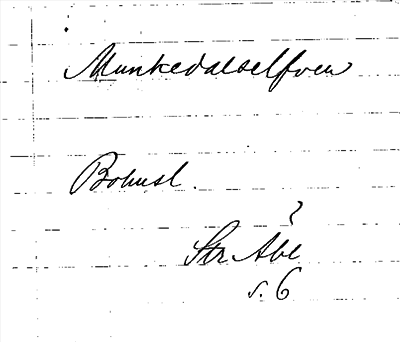 Munkedalselfven
Bohusl.
Str Åbl
s. 6